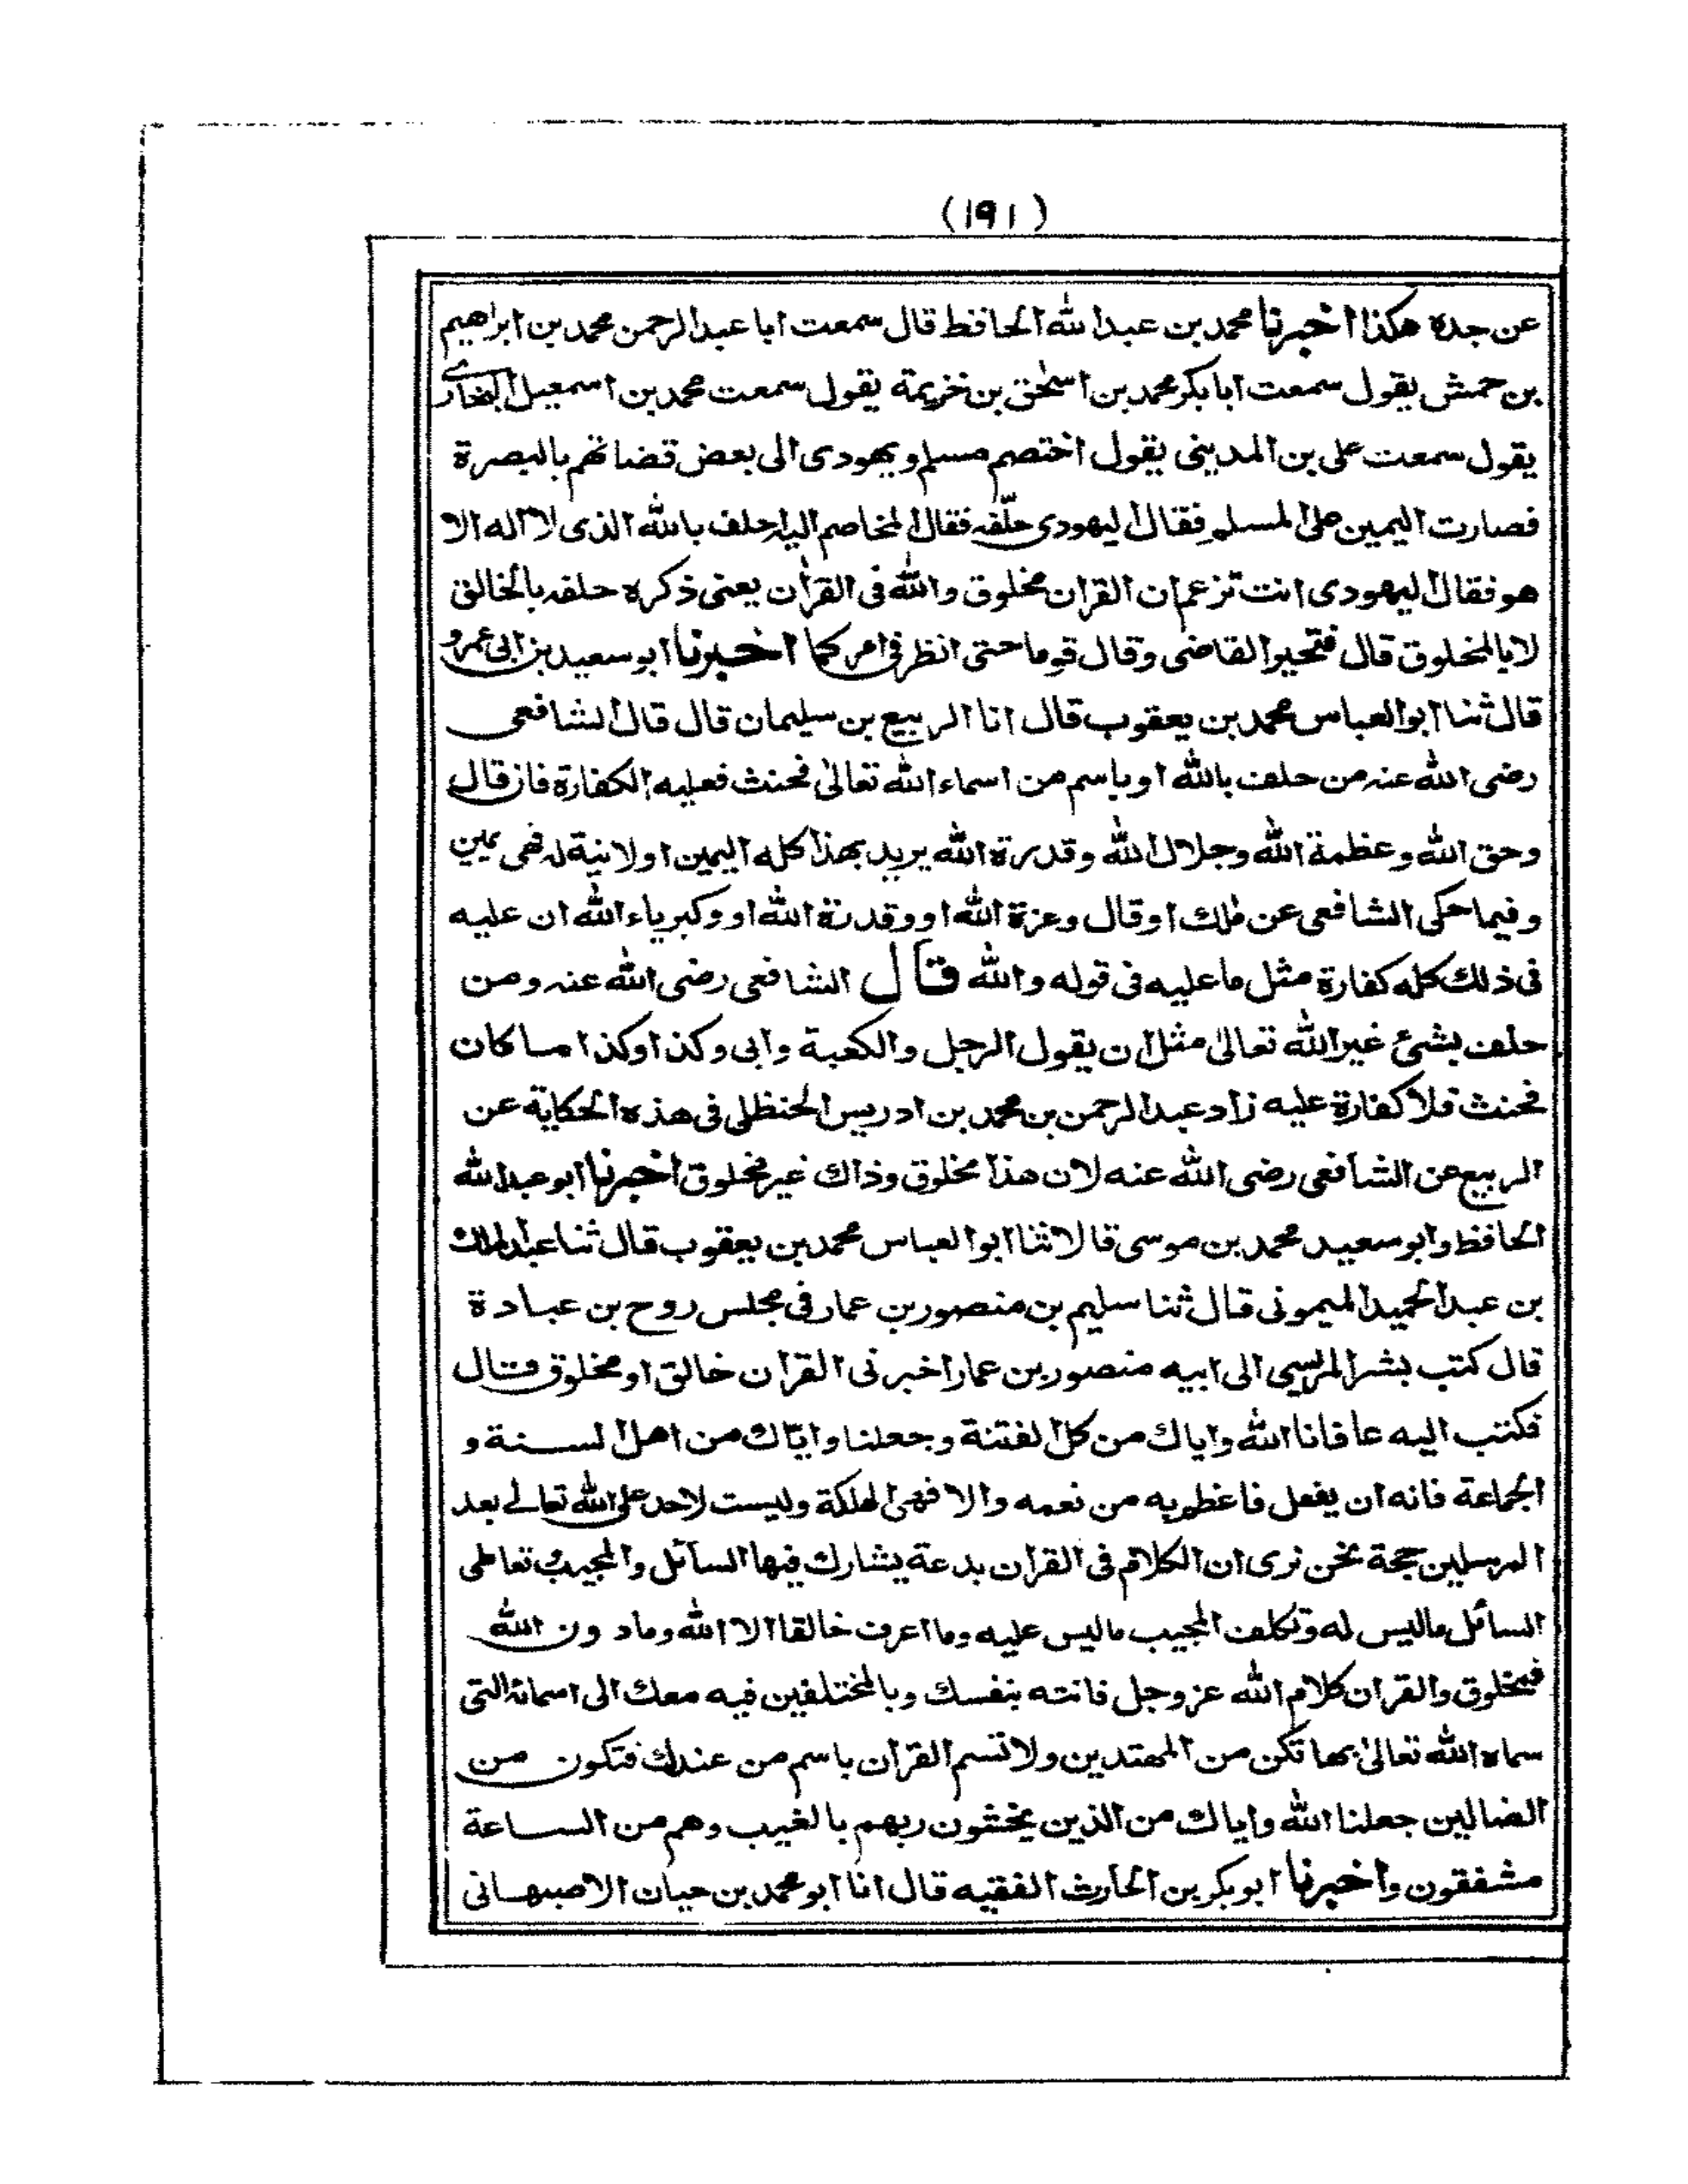 (١٩١)
عن جده هكذا اخبرنا محمد بن عبدالله الحافظ قال سمعت ابا عبدالرحمن محمد بن ابراهيم
بن حمش يقول سمعت ابا بكر محمد بن اسحٰق بن خزيمة يقول سمعت محمد بن اسمعيل البخارى
يقول سمعت على بن المدينى يقول اختصم مسلم ويهودى الى بعض قضاتهم بالبصرة
فصارت اليمين على المسلم فقال اليهودى حلّفه فقال المخاصم اليه احلف بالله الذى لا اله الا
هو فقال اليهودى انت تزعم ان القران مخلوق والله فى القرآن يعنى ذكره حلفه بالخالق
لا بالمخلوق قال فتحير القاضى وقال قوما حتى انظر فى امركما اخبرنا ابو سعيد بن ابى عمرو
قال ثنا ابو العباس محمد بن يعقوب قال انا الربيع بن سليمان قال قال الشافعى
رضى الله عنه من حلف بالله او باسم من اسماء الله تعالىٰ فحنث فعليه الكفارة فان قال
وحق الله وعظمة الله وجلال الله وقدرة الله يريد بهذا كله اليمين اولا نية له فهى يمين
وفيما حكى الشافعى عن مٰلك او قال وعزة الله او وقدرة الله او وكبرياء الله ان عليه
فى ذلك كله كفارة مثل ما عليه فى قوله والله قال الشافعى رضى الله عنه ومن
حلف بشئ غير الله تعالىٰ مثل ان يقول الرجل والكعبة وابى وكذا وكذا ما كان
فحنث فلا كفارة عليه زاد عبدالرحمن بن محمد بن ادريس الحنظلى فى هذه الحكاية عن
الربيع عن الشافعى رضى الله عنه لان هذا مخلوق وذاك غير مخلوق اخبرنا ابو عبدالله
الحافظ وابو سعيد محمد بن موسى قالا ثنا ابو العباس محمد بن يعقوب قال ثنا عبدالملك
بن عبدالحميد الميمونى قال ثنا سليم بن منصور بن عمار فى مجلس روح بن عبادة
قال كتب بشر المريسى الى ابيه منصور بن عمار اخبرنى القرآن خالق او مخلوق قال
فكتب اليه عافانا الله واياك من كل الفتنة وجعلنا وايّاك من اهل السنة و
الجماعة فانه ان يفعل فاعظم به من نعمه والا فهى الهلكة وليست لاحد على الله تعالے بعد
المرسلين حجة نحن نرى ان الكلام فى القرآن بدعة يشارك فيها السائل والمجيب تعاطى
السائل ماليس له وتكلف المجيب ماليس عليه وما اعرف خالقا الا الله وما دون الله
فمخلوق والقران كلام الله عزوجل فانته بنفسك وبالمختلفين فيه معك الى اسمائه التى
سماه الله تعالىٰ بها تكن من المهتدين ولا تسم القرآن باسم من عندك فتكون من
الضالين جعلنا الله واياك من الذين يخشون ربهم بالغيب وهم من الساعة
مشفقون واخبرنا ابو بكر بن الحارث الفقيه قال انا ابو محمد بن حيان الاصبهانى